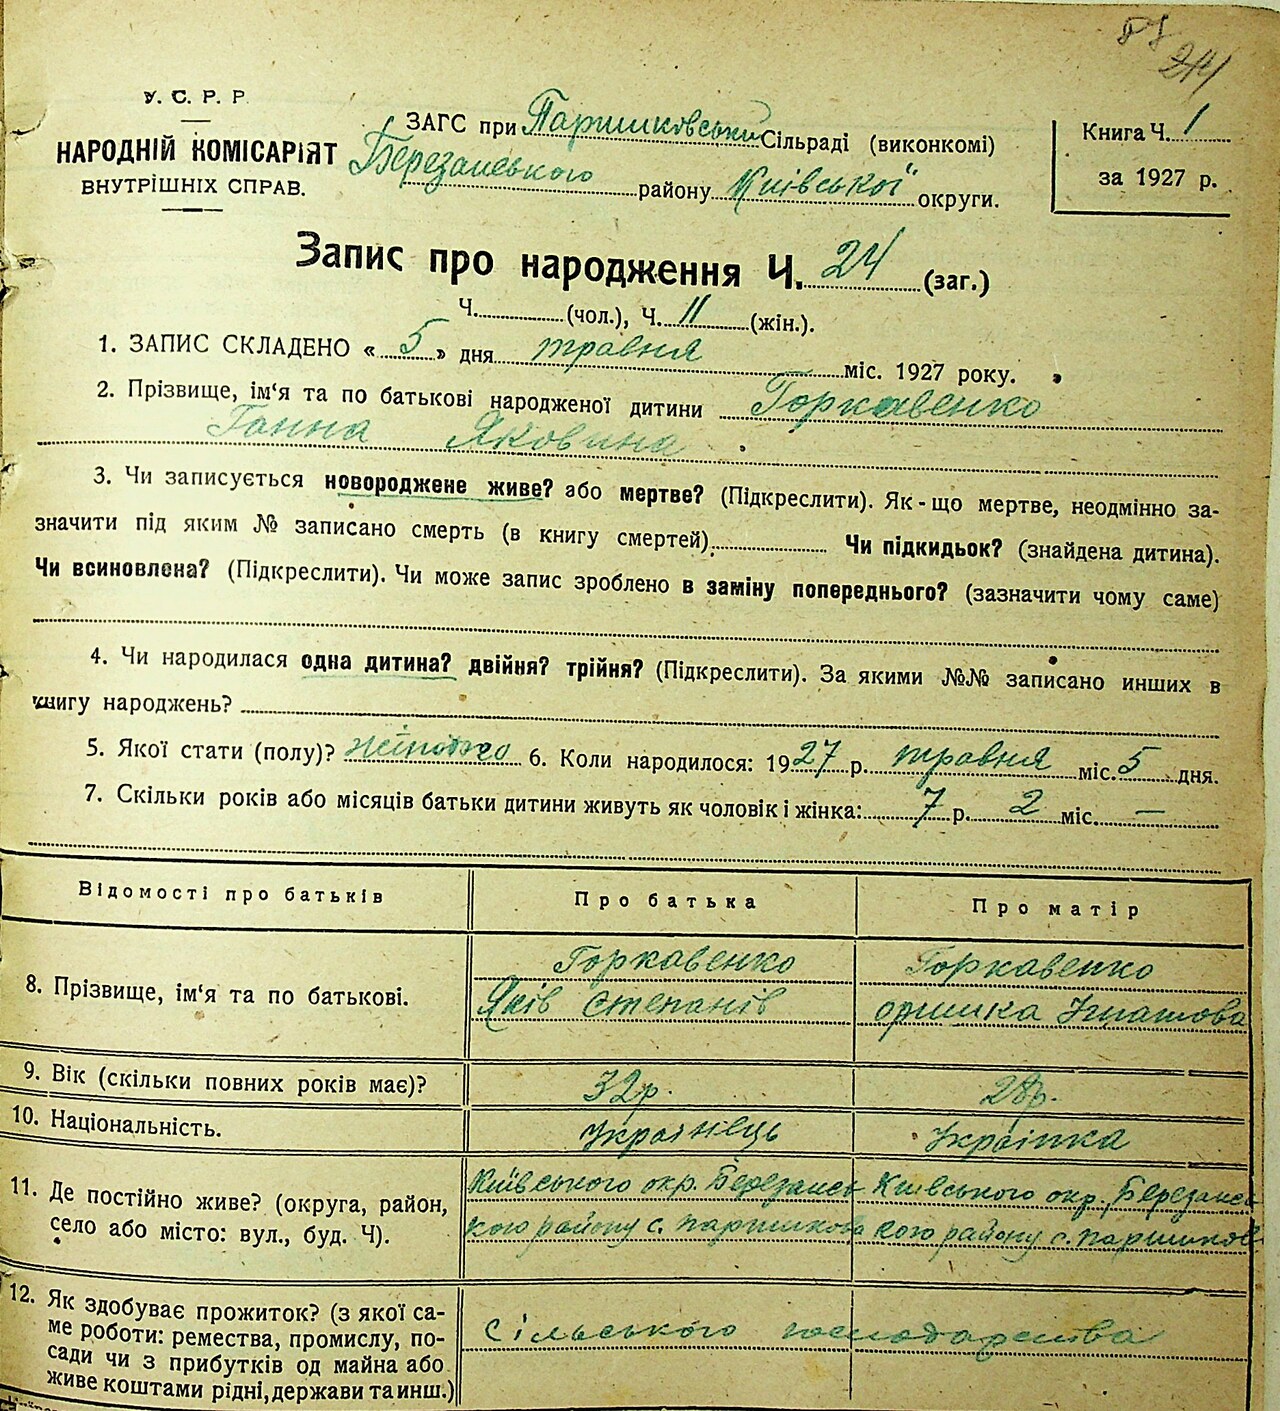 24
У. С. Р. Р.
НАРОДНІЙ КОМІСАРІЯТ
ВНУТРІШНІХ СПРАВ.
ЗАГС при Паришковській Сільраді (виконкомі)
Березанського району Київської округи.
Книга Ч. 1
за 1927 р.
Запис про народження Ч. 24 (заг.)
Ч. (чол.), Ч. 11 (жін.).
1. ЗАПИС СКЛАДЕНО « 5 » дня травня міс. 1927 року.
2. Прізвище, ім‘я та по батькові народженої дитини Горкавенко
Ганна Яковина
3. Чи записується новороджене живе? або мертве? (Підкреслити). Як-що мертве, неодмінно за-
значити під яким № записано смерть (в книгу смертей) Чи підкидьок? (знайдена дитина).
Чи всиновлена? (Підкреслити). Чи може запис зроблено в заміну попереднього? (зазначити чому саме)
4. Чи народилася одна дитина? двійня? трійня? (Підкреслити). За якими №№ записано инших в
книгу народжень?
5. Якої стати (полу)? жіночого 6. Коли народилося: 1927 р. травня міс. 5 дня.
7. Скільки років або місяців батьки дитини живуть як чоловік і жінка: 7 р. 2 міс. —
Відомості про батьків Про батька Про матір
8. Прізвище, ім‘я та по батькові.
Горкавенко Горкавенко
Яків Степанів оришка Ігнатова
9. Вік (скільки повних років має)? 32р. 28р.
10. Національність. Українець Українка
11. Де постійно живе? (округа, район,
село або місто: вул., буд. Ч).
Київського окр. Березансь Київського окр. Березансь
кого району с. паришкова кого району с. паришков
12. Як здобуває прожиток? (з якої са-
ме роботи: ремества, промислу, по-
сади чи з прибутків од майна або
живе коштами рідні, держави та инш.)
сільського господарства